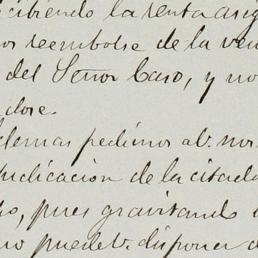 cibiendo la renta asig
os reembolse de la ven
del Señor Caso, y no
dose.
demas pedimos al nos
judicacion de la citada
o, pues gravitando
no puede disponer d